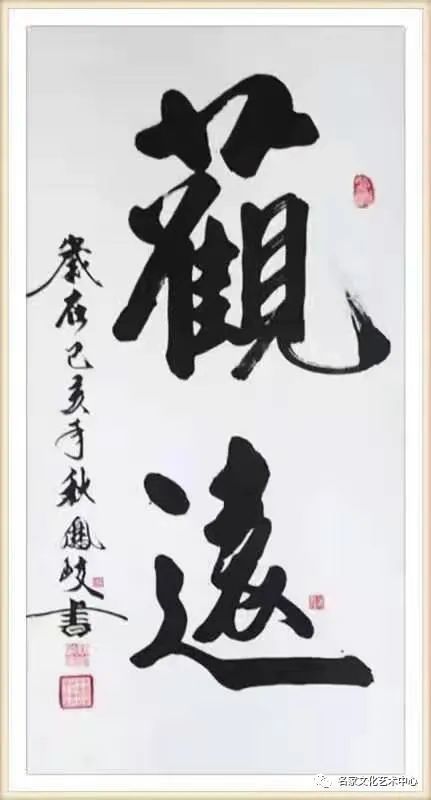 觀遠
歲在己亥年秋鳳岐書
名家文化艺术中心